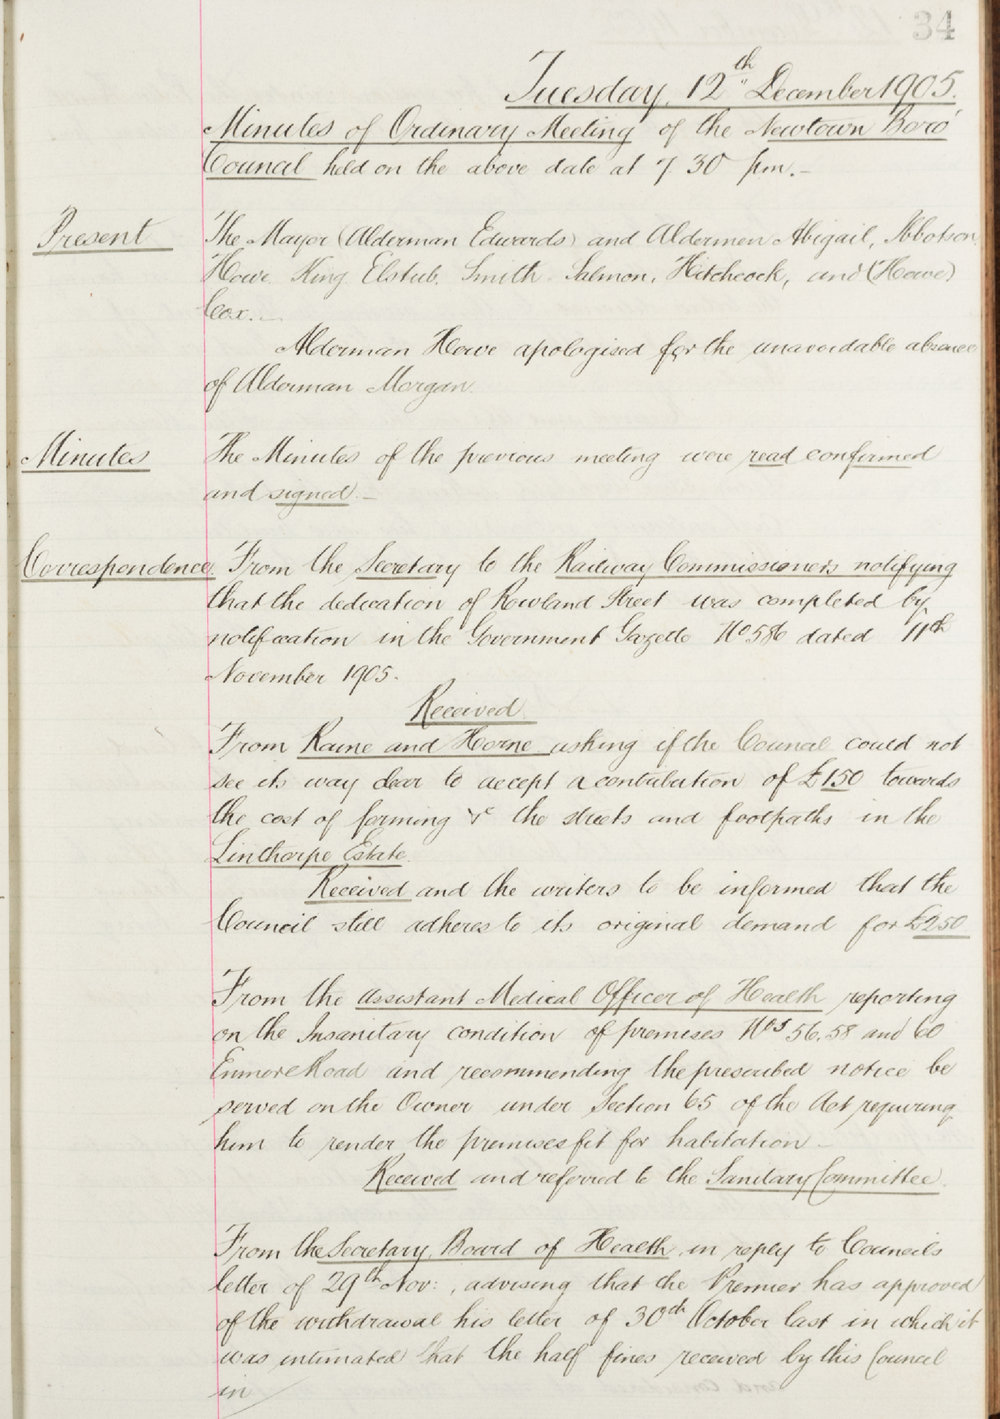 34
Tuesday, 12th December 1905.
Minutes of Ordinary Meeting of the Newtown Boro'
Council held on the above date at 7 30 pm.-
Present
The Mayor (Alderman Edwards) and Aldermen Abigail, Ibbotson,
Howe King Elstub, Smith Salmon, Hitchcock, and (Howe)
Cox.-
Alderman Howe apologised for the unavoidable absence
of Alderman Morgan.
Minutes
The Minutes of the previous meeting were read confirmed
and signed.-
Correspondence.
From the Secretary to the Railway Commissioners notifying
that the dedication of Rowland Street was completed by
notification in the Government Gazette No 586 dated 11th
November 1905.
Received
From Raine and Horne asking if the Council could not
see its way clear to accept a contribution of £150 towards
the cost of forming &c the streets and footpaths in the
Linthorpe Estate.
Received and the writers to be informed that the
Council still adheres to its original demand for £250
From the Assistant Medical Officer of Health reporting
on the Insanitary condition of premises Nos 56, 58 and 60
Enmore Road and recommending the prescribed notice be
served on the Owner under Section 65 of the Act requiring
him to render the premises fit for habitation -
Received and referred to the Sanitary Committee.
From the Secretary, Board of Health in reply to Council's
letter of 29th Nov: , advising that the Premier has approved
of the withdrawal his letter of 30th October last in which it
was intimated that the half fines received by this Council
in